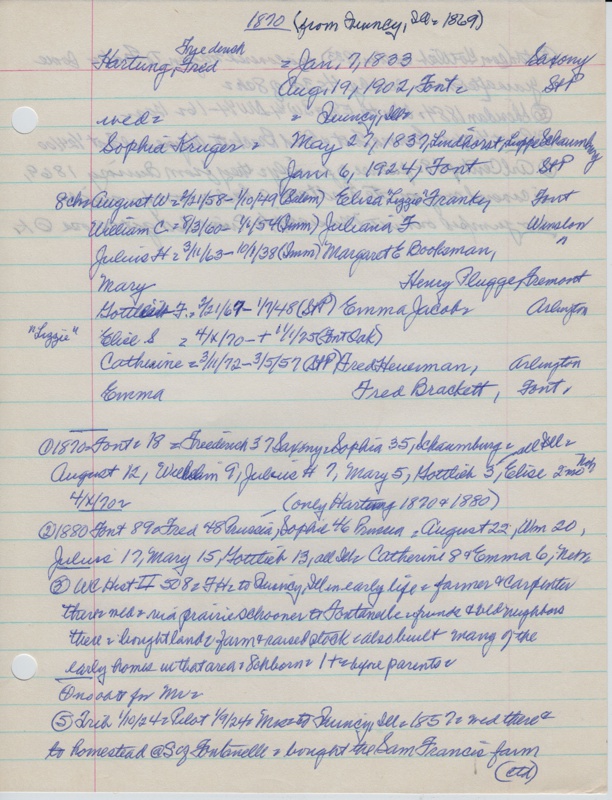 1870 (from Quincy, Ill = 1869)
Fryedersh
Hartung, Fred = Jan, 7, 1833 Saxony
Aug, 19, 1902, Font = StP
wed = = Quincy, Ills
Sophia Kruger = May 27, 1837, Lindhorst, Lippe Schaumburg
Jan 6, 1924, Font StP
8 chs August W = 9/21/58 - 1/10/49 (Salem) Elisa "Lizzie" Franke, Font
William C = 8/3/60 = 1/6/54 (Imm) Juliana F Winslow
Julius H = 3/11/63 - 10/1/38 (Imm) Margaret E Booksman,
Mary Henry Plugge, Fremont
Gottlieb F., 2/21/67 - 1/7/48 (StP) Emma Jacobs Arlington
"Lizzie" Elise S = 4/x/70 - + 1/1/25 (Font Oak)
Catherine = 3/11/72 - 3/5/57 (StP) Fred Heuerman, Arlington
Emma Fred Brackett, Font,
① 1870 = Font = 18 = Freederich 37 Saxony, Sophia 35, Schaumburg = all Ill =
August 12, Wilhelm 9, Julius H 7, Mary 5, Gottlieb 3, Elise 2 mo Neb
4/x/70 = (only Hartung 1870 & 1880)
② 1880 Font 89 = Fred 48 Prussia, Sophie 46 Prussia = August 22, Wm 20,
Julius 17, Mary 15, Gottlieb 13, all Ill = Catherine 8 & Emma 6, Neb =
③ WC Hist II 508 = FH = to Quincy, Ill in early life = farmer & carpenter
there = wed = via prairie schooner to Fontanelle = friends & old neighbors
there = bought land = farm & raised stock = also built many of the
early homes in that area = 8 ch born = 1 + = by re parents =
One vote for Mr =
⑤ Trib 1/10/24 = Pilot 1/9/24 = Mrs = to Quincy, Ill = 1857 = wed there =
to homestead @ S of Fontanelle = bought the Sam Francis farm
(ctd)